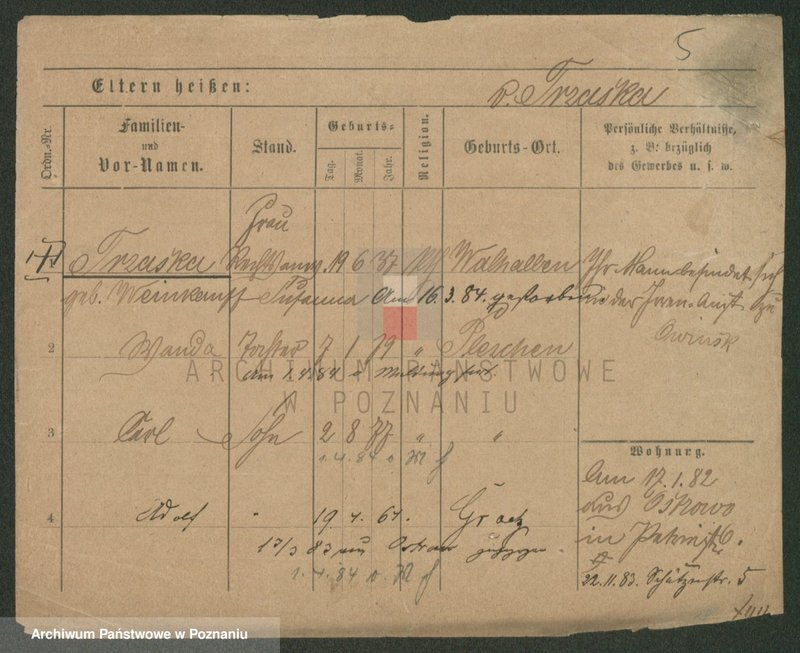 5
Eltern heißen:
v. Trzaska
Ordn.-Nr.
Familien-
und
Vor-Namen.
Stand.
Geburts-
Tag.
Monat.
Jahr.
Religion.
Geburts-Ort.
Persönliche Verhältnisse,
z. B. bezüglich
des Gewerbes u. s. w.
Frau
1 Trzaska Rechtsanw. 19 6 37 Walhallben Ihr Mann befindet sich
geb. Weinkauff Susanna Am 16. 3. 84. gestorben in der Irren-Anst. zu
Owinsk
2 Wanda Tochter 7 1 79 " Pleschen
Am 1.4.84 o Meldung fort.
ARCHIWUM PAŃSTWOWE
W POZNANIU
3 Carl Sohn 2 8 77 " "
1.4.84 o M f
Wohnung.
Am 17.1.82
aus
in
4 Adolf " 19 4. 61. Graetz
17/3 83 zugezogen.
1.4.84 o. M f
22.11.83. Schützenstr. 5
Archiwum Państwowe w Poznaniu